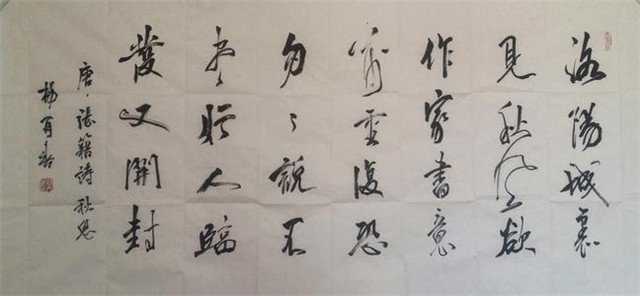 洛陽城裏
見秋風欲
作家書意
萬重復恐
匆々說不
盡行人臨
發又開封
唐·張籍詩秋思
楊